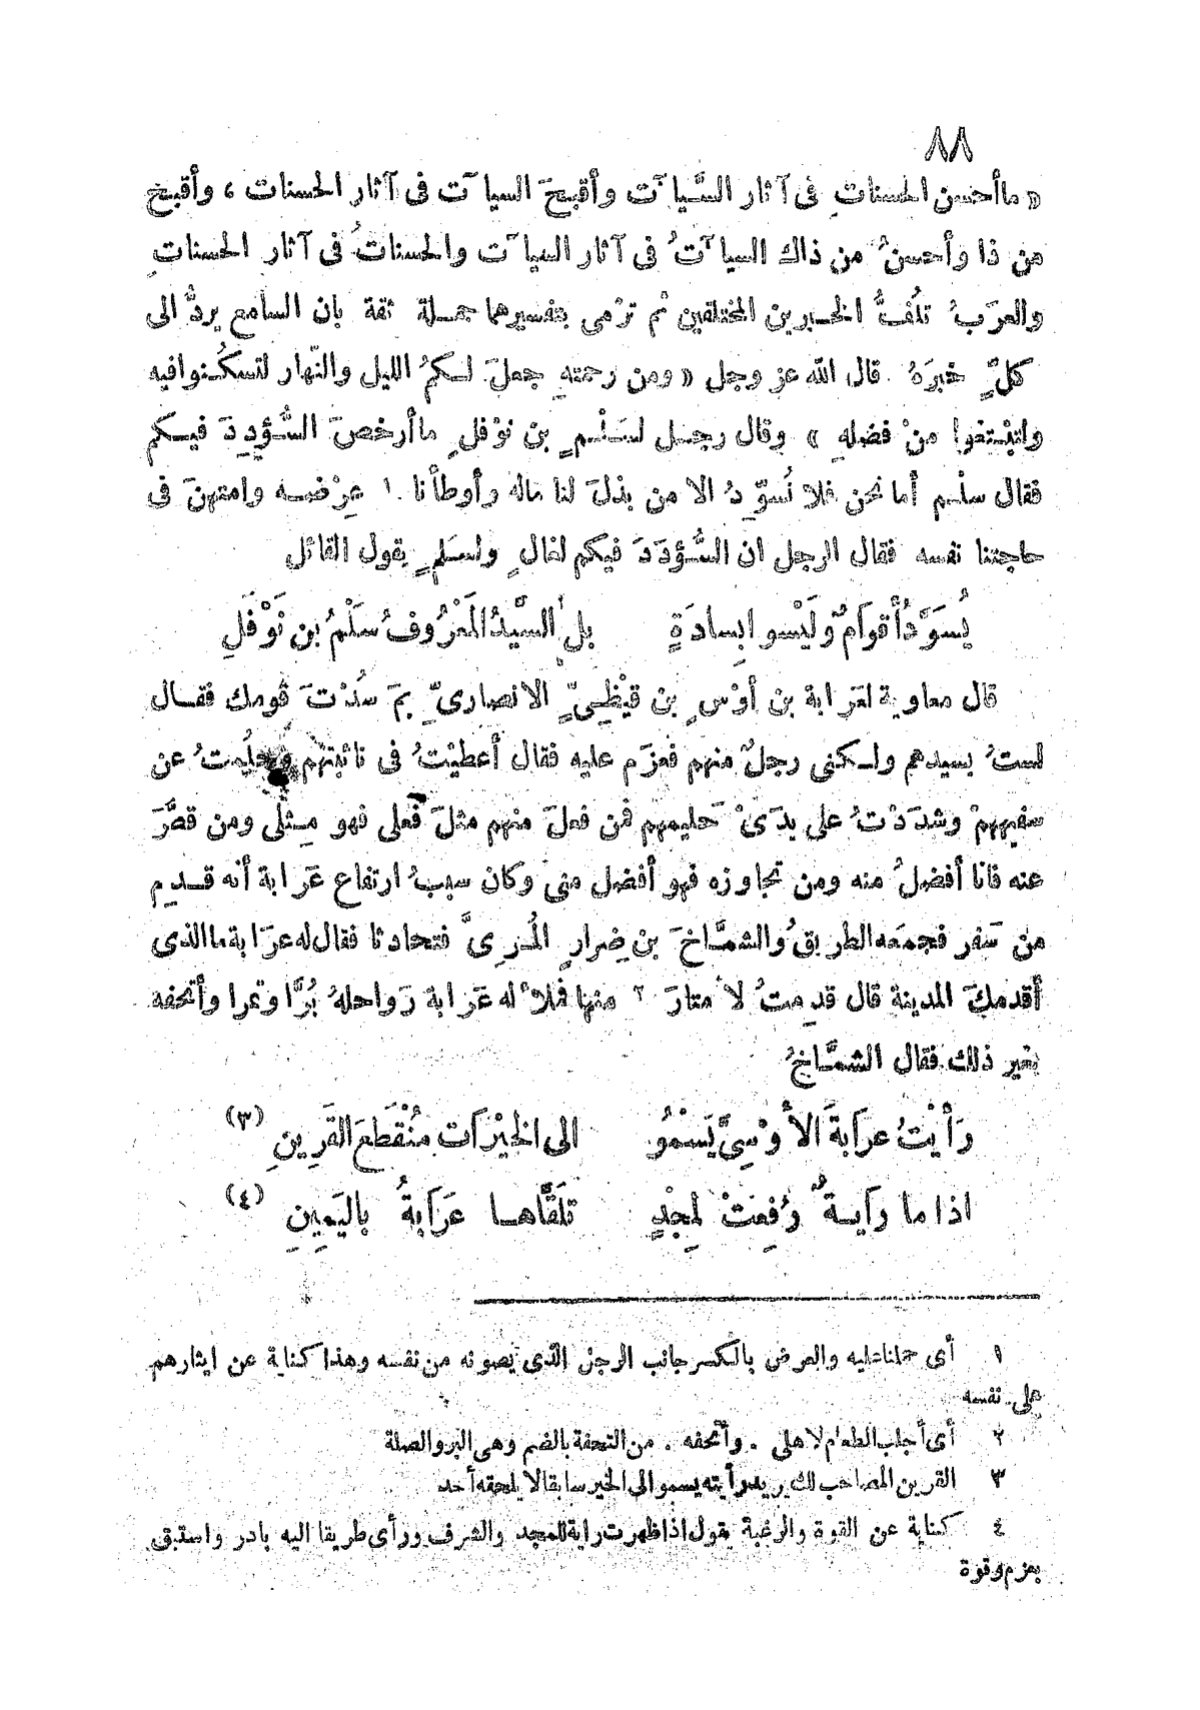 ٨٨
« ما أحسن الحسناتِ فى آثار السَّيآت وأقبحَ السيآت فى آثار الحسنات ، وأقبح
من ذا وأحسنُ من ذاك السيآتُ فى آثار السيآت والحسناتُ فى آثار الحسناتِ
والعرَبُ تلُفُّ الخبرين المختلفين ثم ترْمى بتفسيرهما جملة ثقة بان السامع يردُّ الى
كلٍّ خبرَهُ قال الله عز وجل « ومن رحمتهِ جعلَ لكمُ الليل والنّهار لتسكُنوا فيه
ولتبْتغوا منْ فضلهِ » وقال رجل لسَلْمٍ بن نوْفلٍ ما أرخصَ السُّؤددَ فيكم
فقال سلْم أما نحن فلا نُسوِّدُ الا من بذلَ لنا ماله وأوطأنا ١ عِرْضه وامتهنَ فى
حاجتنا نفسه فقال الرجل ان السُّؤدَدَ فيكم لغالٍ ولسَلمٍ يقول القائل
يُسَوَّدُ أقوامٌ ولَيْسوا بِسادَةٍ بل السَّيِّدُ المَعْرُوفُ سَلْمُ بن نَوْفَلِ
قال معاوية لعَرابة بن أوْسٍ بن قيْظِىٍّ الانصارىِّ بمَ سُدْتَ قومك فقال
لستُ بسيدهم ولكنى رجلٌ منهم فعزَم عليه فقال أعطيْتُ فى نائبتهم وحلُمتُ عن
سفيههمْ وشدَدْتُ على يدَىْ حَليمهم فمن فعلَ منهم مثلَ فعلى فهو مِثلى ومن قصَّرَ
عنه فانا أفضلُ منه ومن تجاوزه فهو أفضل منى وكان سببُ ارتفاع عَرابة أنه قدِم
من سَفر فجمَعه الطريقُ والشمَّاخَ بن ضِرارٍ المُزنِىَّ فتحادثا فقال له عرَابة ما الذى
أقدمكَ المدينة قال قدِمتُ لأمتارَ ٢ منها فملأ له عَرابة رَواحلهُ بُرًّا وتمرا وأتحفه
بغير ذلك فقال الشمَّاخُ
رَأيْتُ عرابةَ الأوْسِىَّ يَسْمُو الى الخيْرَات مُنْقَطعَ القَرِينِ (٣)
اذا ما رايةٌ رُفِعَتْ لمِجْدٍ تلَقَّاها عَرَابةُ باليَمِينِ (٤)
١ أى حملنا عليه والعرض بالكسر جانب الرجل الذى يصونه من نفسه وهذا كناية عن ايثارهم
على نفسه
٢ أى أجلب الطعام لاهلى . وأتحفه . من التحفة بالضم وهى البر والصلة
٣ القرين المصاحب لك يريد رأيته يسمو الى الخير سابقا لا يلحقه أحد
٤ كناية عن القوة والرغبة يقول اذا ظهرت راية للمجد والشرف ورأى طريقا اليه بادر واستبق
بعزم وقوة